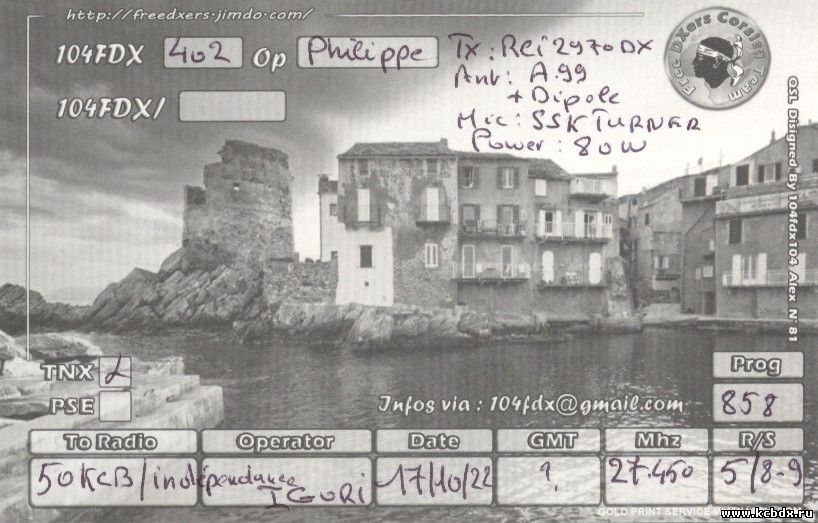 http://freedxers.jimdo.com/
104FDX 402 Op Philippe
Tx: Rci 2970DX
Ant: A.99
+ Dipole
Mic: SSK TURNER
Power: 80W
104FDX/
Free DXers Corsica Team
QSL Disigned By 104fdx104 Alex N°81
TNX
PSE
Infos via : 104fdx@gmail.com
Prog
858
To Radio Operator Date GMT Mhz R/S
50KCB/indépendance IGORi 17/10/22 ? 27.450 5/8-9
GOLD PRINT SERVICE
www.kcbdx.ru